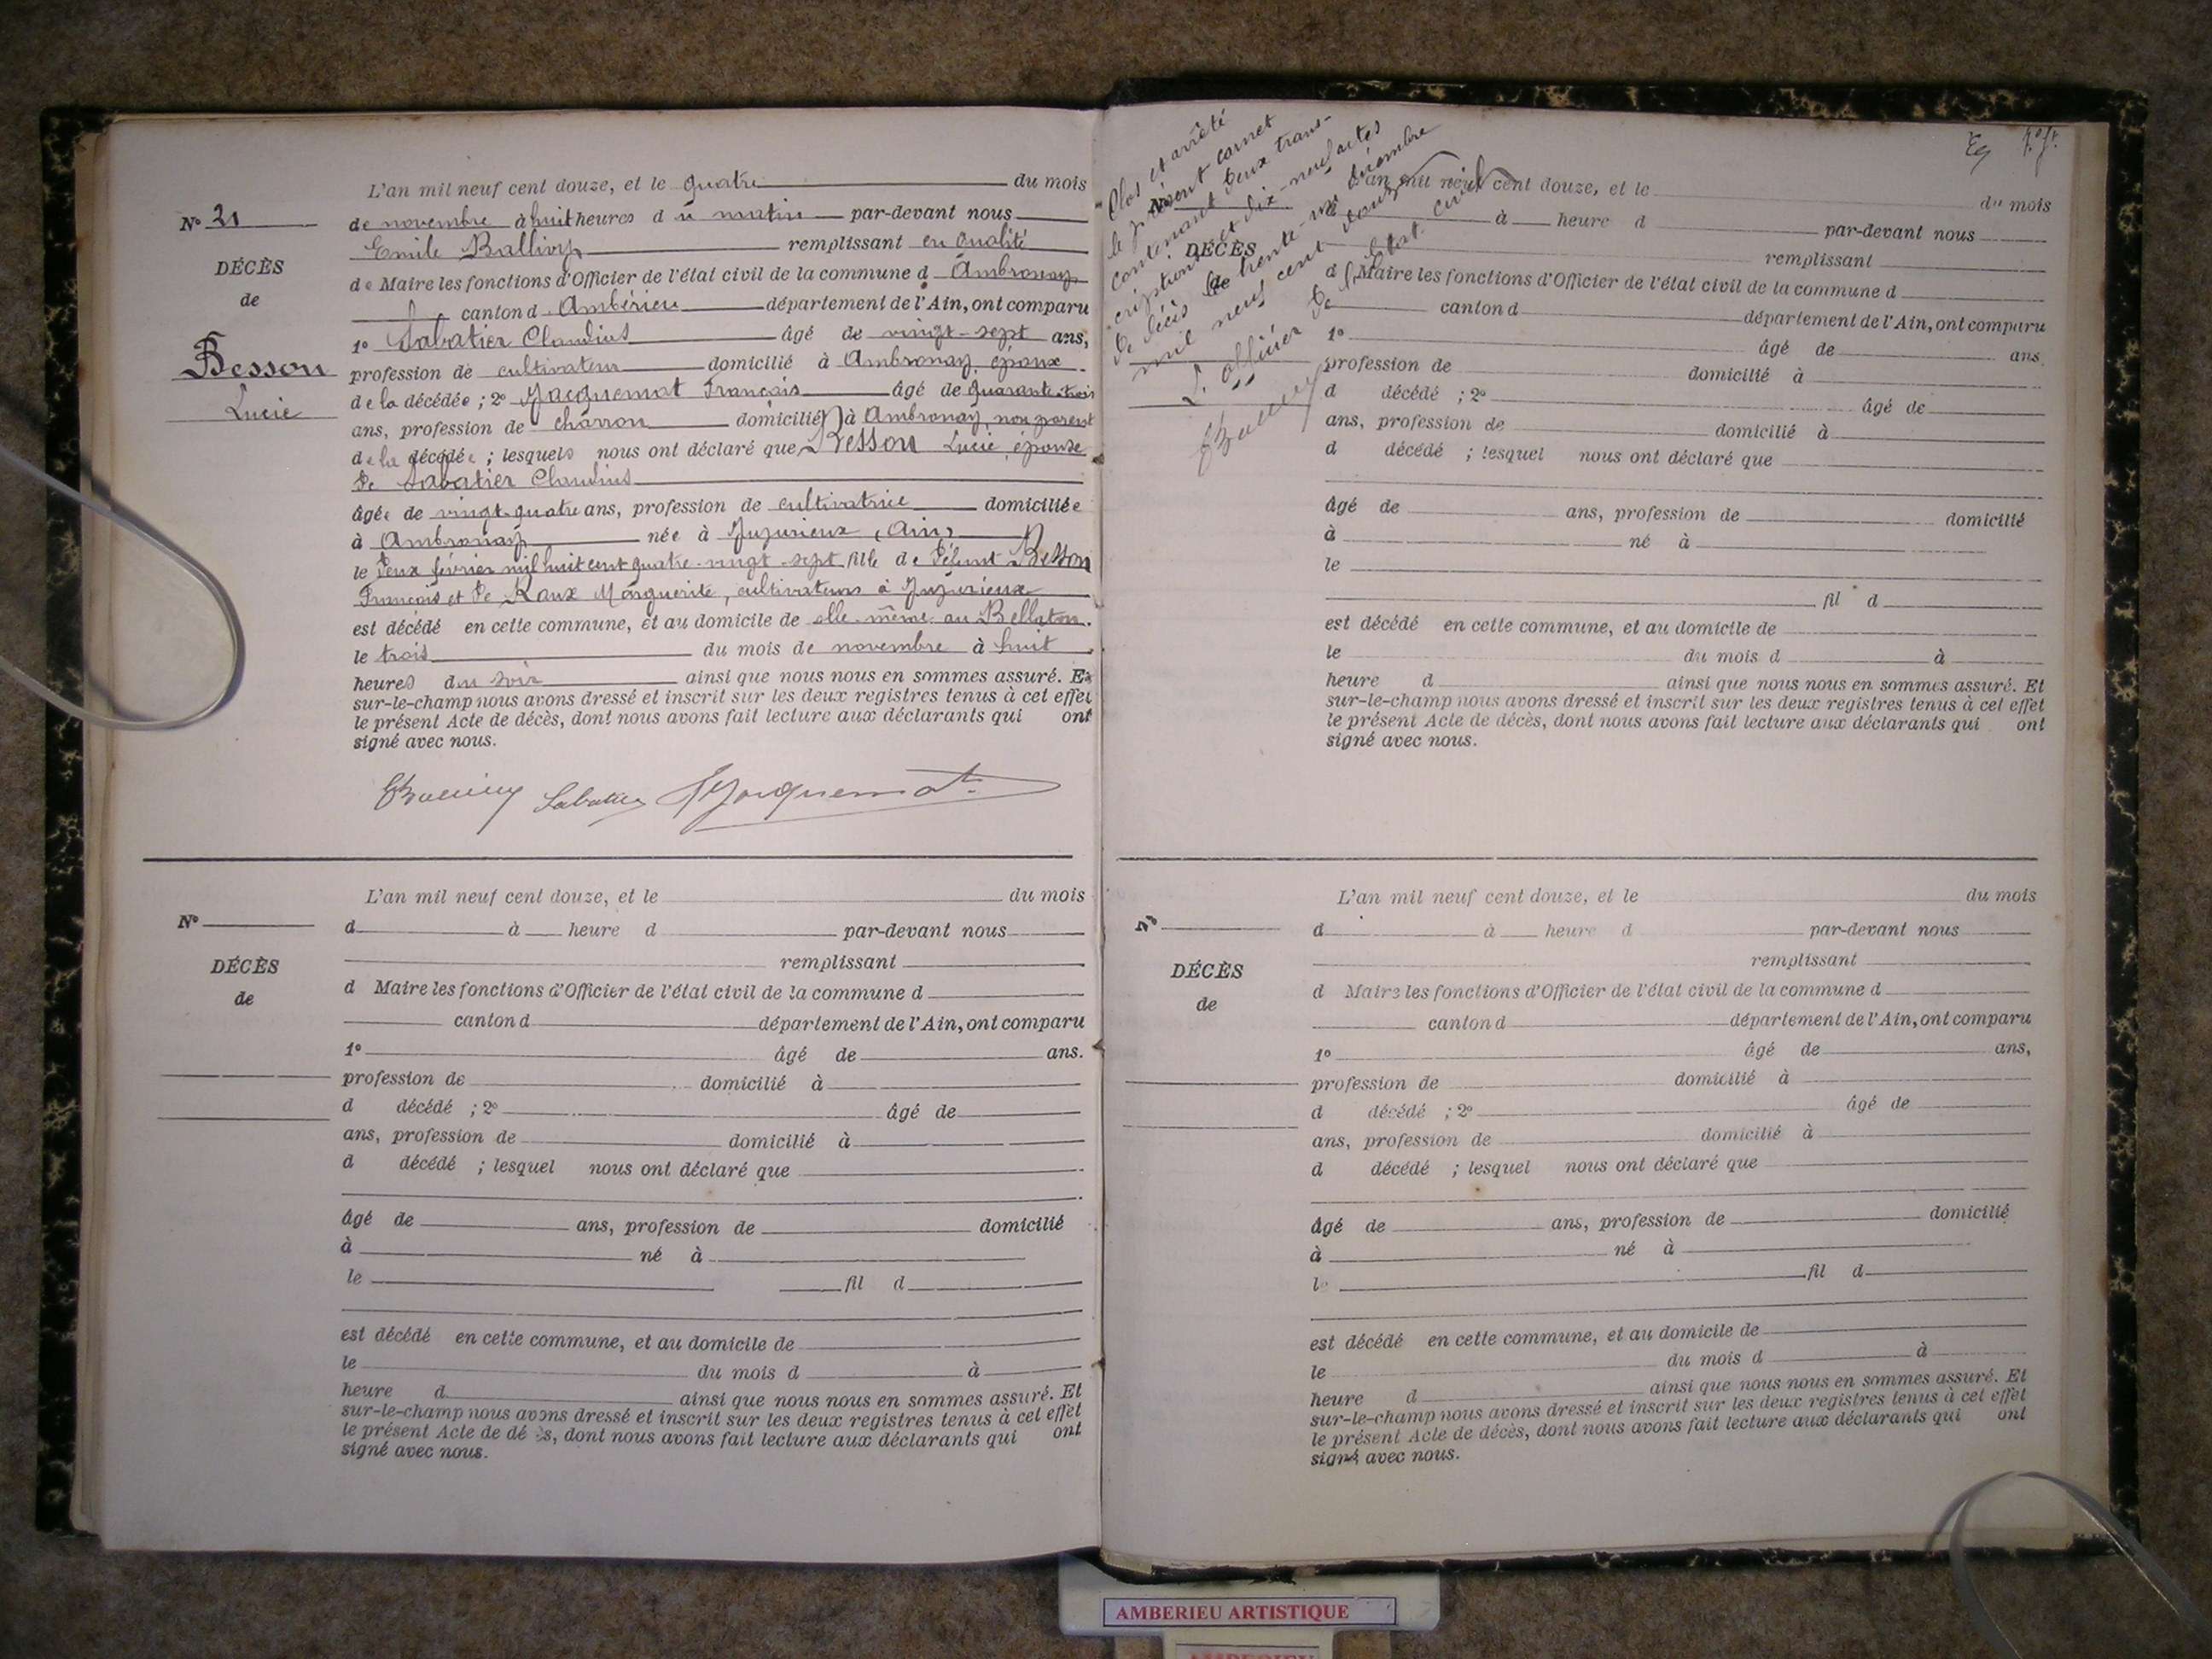 L'an mil neuf cent douze, et le quatre du mois
de novembre à huit heures du matin par-devant nous
Emile Ballivy remplissant en qualité
de Maire les fonctions d'Officier de l'état civil de la commune d Ambronay
canton d Ambérieu département de l'Ain, ont comparu
1º Sabatier Claudius âgé de vingt-sept ans,
profession de cultivateur domicilié à Ambronay, époux
de la décédée ; 2º Jacquemot François âgé de quarante-trois
ans, profession de charron domicilié à Ambronay, non parent
de la décédée ; lesquels nous ont déclaré que Besson Lucie épouse
de Sabatier Claudius
âgée de vingt-quatre ans, profession de cultivatrice domiciliée
à Ambronay née à Jujurieux (Ain)
le deux février mil huit cent quatre-vingt-sept fille de défunt Besson
François et de Raux Marguerite, cultivateurs à Jujurieux
est décédé en cette commune, et au domicile de elle-même au Bellaton.
le trois du mois de novembre à huit
heures du soir ainsi que nous nous en sommes assuré. Et
sur-le-champ nous avons dressé et inscrit sur les deux registres tenus à cet effet
le présent Acte de décès, dont nous avons fait lecture aux déclarants qui ont
signé avec nous.
Nº 21
DÉCÈS
de
Besson
Lucie
Sabatier Jacquemot
L'an mil neuf cent douze, et le du mois
Nº
d à heure d par-devant nous
remplissant
DÉCÈS
de
d Maire les fonctions d'Officier de l'état civil de la commune d
canton d département de l'Ain, ont comparu
1º âgé de ans.
profession de domicilié à
d décédé ; 2º âgé de
ans, profession de domicilié à
d décédé ; lesquel nous ont déclaré que
âgé de ans, profession de domicilié
à né à
le fil d
est décédé en cette commune, et au domicile de
le du mois d à
heure d ainsi que nous nous en sommes assuré. Et
sur-le-champ nous avons dressé et inscrit sur les deux registres tenus à cet effet
le présent Acte de décès, dont nous avons fait lecture aux déclarants qui ont
signé avec nous.
Clos et arrêté
le présent carnet
contenant deux trans-
criptions et dix-neuf actes
de décès le trente-un décembre
mil neuf cent douze
L'officier de l'Etat civil
L'an mil neuf cent douze, et le du mois
Nº
d à heure d par-devant nous
DÉCÈS
de
remplissant
d Maire les fonctions d'Officier de l'état civil de la commune d
canton d département de l'Ain, ont comparu
1º âgé de ans
profession de domicilié à
d décédé ; 2º âgé de
ans, profession de domicilié à
d décédé ; lesquel nous ont déclaré que
âgé de ans, profession de domicilié
à né à
le
fil d
est décédé en cette commune, et au domicile de
le du mois d à
heure d ainsi que nous nous en sommes assuré. Et
sur-le-champ nous avons dressé et inscrit sur les deux registres tenus à cet effet
le présent Acte de décès, dont nous avons fait lecture aux déclarants qui ont
signé avec nous.
L'an mil neuf cent douze, et le du mois
Nº
d à heure d par-devant nous
remplissant
DÉCÈS
de
d Maire les fonctions d'Officier de l'état civil de la commune d
canton d département de l'Ain, ont comparu
1º âgé de ans,
profession de domicilié à
d décédé ; 2º âgé de
ans, profession de domicilié à
d décédé ; lesquel nous ont déclaré que
âgé de ans, profession de domicilié
à né à
le fil d
est décédé en cette commune, et au domicile de
le du mois d à
heure d ainsi que nous nous en sommes assuré. Et
sur-le-champ nous avons dressé et inscrit sur les deux registres tenus à cet effet
le présent Acte de décès, dont nous avons fait lecture aux déclarants qui ont
signé avec nous.
AMBERIEU ARTISTIQUE
AMBERIEU